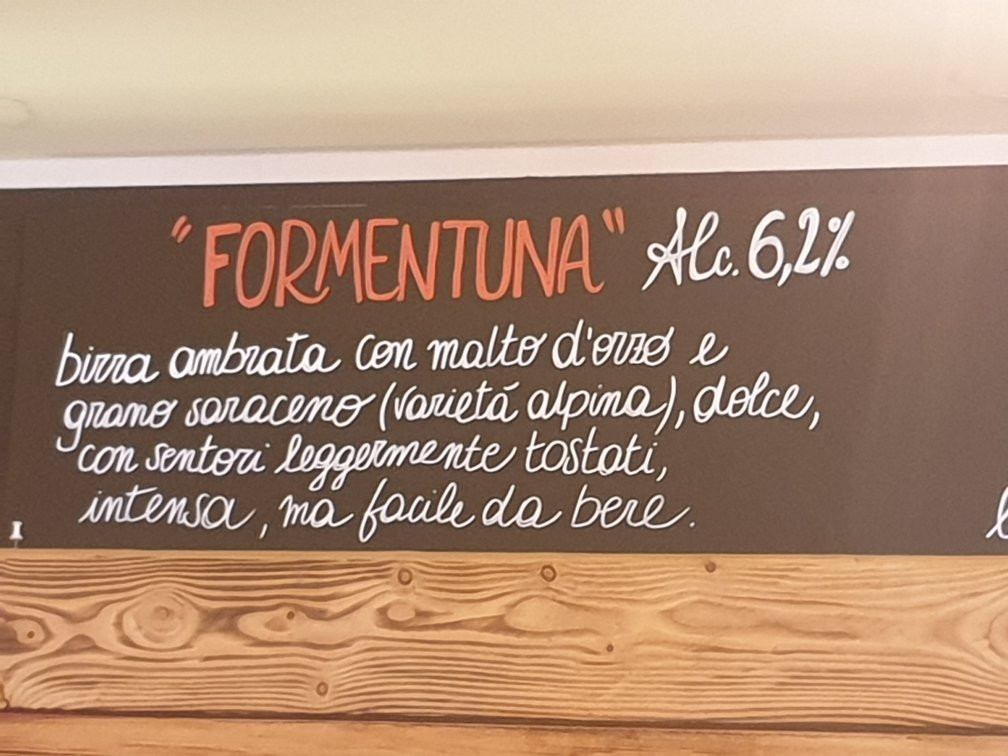 "FORMENTUNA" Alc. 6,2%
birra ambrata con malto d'orzo e
grano saraceno (varietá alpina), dolce,
con sentori leggermente tostati,
intensa, ma facile da bere.